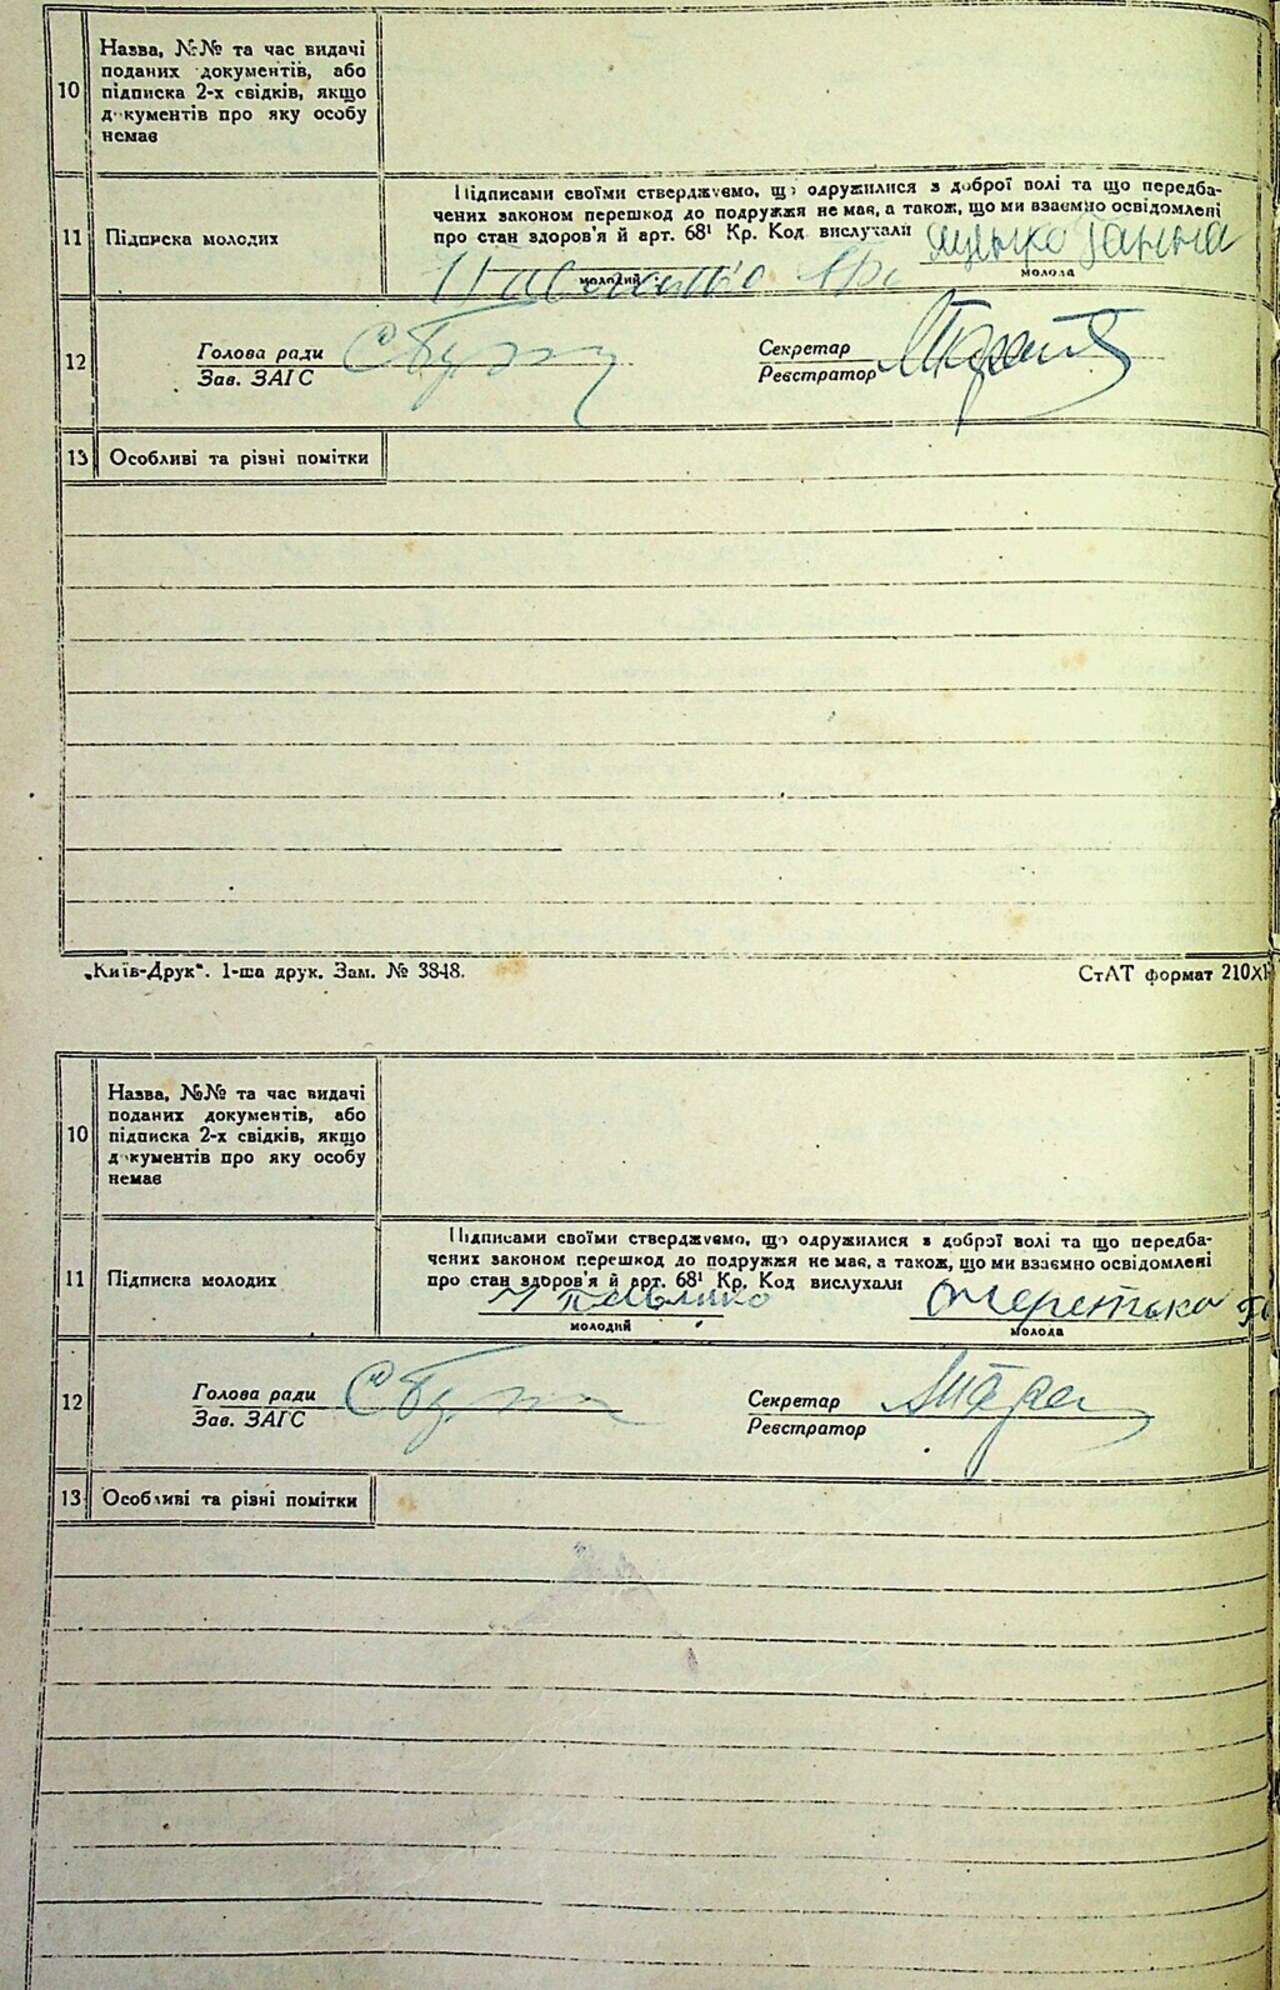 10
Назва, №№ та час видачі
поданих документів, або
підписка 2-х свідків, якщо
документів про яку особу
немає
11
Підписка молодих
Підписами своїми стверджуємо, що одружилися з доброї волі та що передба-
чених законом перешкод до подружжя не має, а також, що ми взаємно освідомлені
про стан здоров'я й арт. 68¹ Кр. Код. вислухали
Ганна
молодий
молода
12
Голова ради
Зав. ЗАГС
Секретар
Реєстратор
13
Особливі та різні помітки
„Київ-Друк“. 1-ша друк. Зам. № 3848.
СтАТ формат 210X
10
Назва, №№ та час видачі
поданих документів, або
підписка 2-х свідків, якщо
документів про яку особу
немає
11
Підписка молодих
Підписами своїми стверджуємо, що одружилися з доброї волі та що передба-
чених законом перешкод до подружжя не має, а також, що ми взаємно освідомлені
про стан здоров'я й арт. 68¹ Кр. Код вислухали
молодий
молода
12
Голова ради
Зав. ЗАГС
Секретар
Реєстратор
13
Особливі та різні помітки